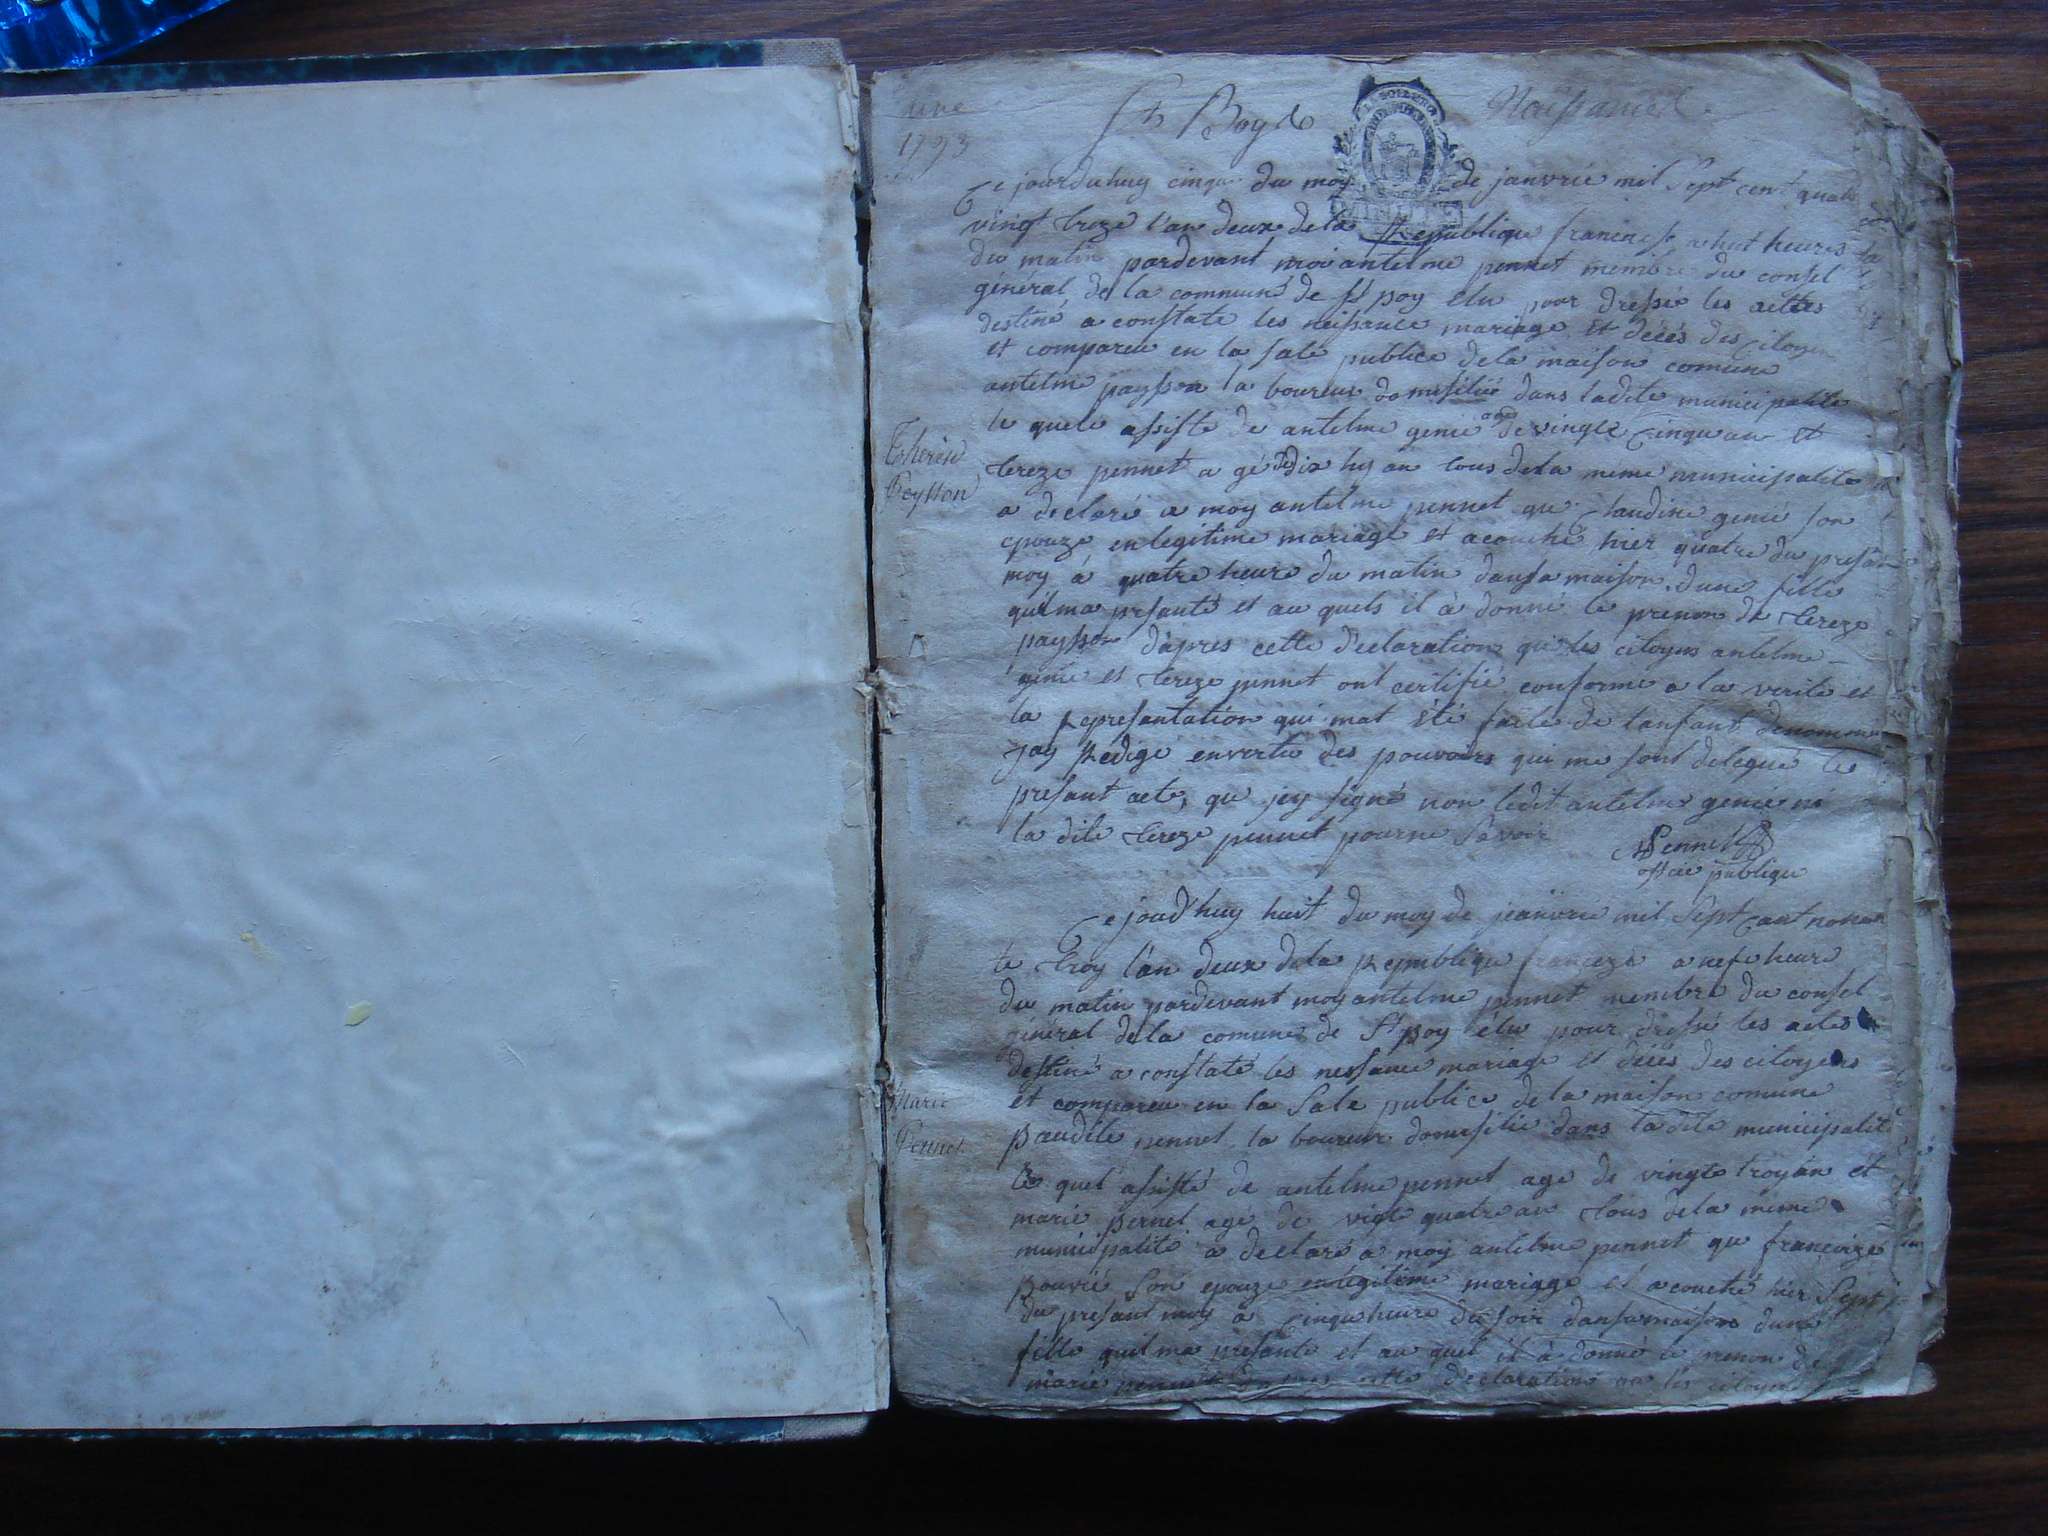 1793
St Boys
Naissance
Ce jourduhuy cinque du moy de janvrie mil sept cent quatre
vingt treze l'an deux de la Republique francaise a huit heures
du matin pardevant moi antelme pennet membre du consel
général de la commune de st poy elu pour dressé les acttes
destiné a constate les neissance mariage et décés des citoyen
et compareu en la sale publice de la maison comune
antelme paysson la boureur domesilié dans ladite municipalite
le quele assisté de antelme genié agé de vingte cinque an et
Therese
Peysson
tereze pennet a gé de dix huy an tous de la meme municipalite
a declaré a moy antelme pennet que claudine genié son
epouze en legitime mariage et acouché hier quatre du presant
moy à quatre heure du matin dans sa maison d'une fille
quil ma présanté et au quels il à donné le prenom de tereze
paysson d'apres cette declaration que les citoyens antelme
genié et tereze pennet ont certifié conforme a la verité et
la representation qui mat été faite de lanfant denommé
jay Redigé en vertu des pouvoirs qui me sont delegué le
presant acte, que jey signé non ledit antelme genié ni
la dite tereze pennet pour ne savoir
Pennet
officié publique
Ce joud'huy huit du moy de jeanvrie mil sept cant nonan
te troy l'an deux de la Republique franceze a nefe heure
du matin pardevant moy antelme pennet membre du consel
général de la comune de St poy élu pour dressé les actes
destiné a constaté les nessance mariage et décés des citoyens
et compareu en la Sale publice de la maison comune
Marie
Pennet
pennet la boureur domesilié dans la dite municipalité
le quel assisté de antelme pennet agé de vingte troy an et
marie pernet agé de vigte quatre an tous de la meme
municipalité a declaré a moy antelme pennet que francoize
pouvié son epouze en legitime mariage et acouché hier sept
du presant moy a cinque heure du soir dans sa maison d'une
fille quil ma presanté et au quel il à donné le prenom de
marie pennet d'apres cette declaration que les citoyens